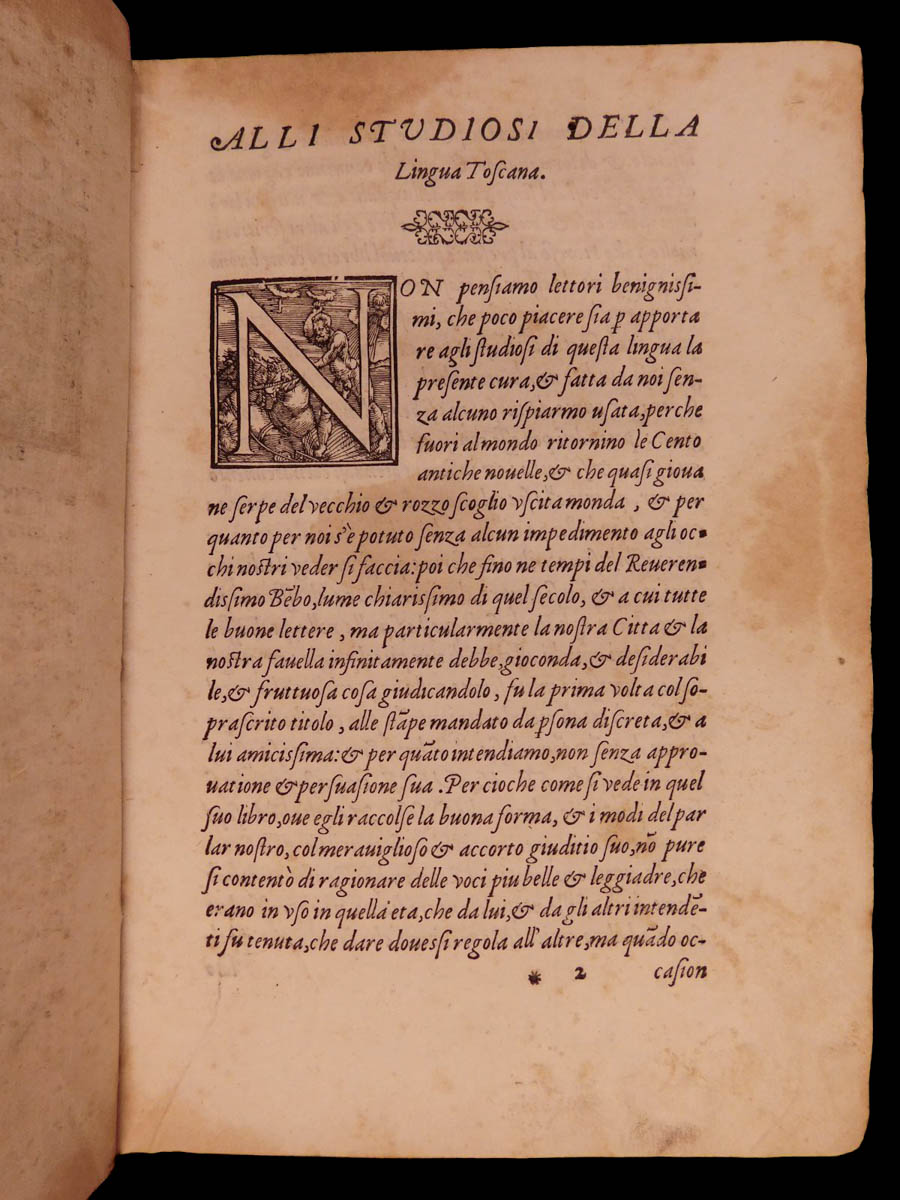 ALLI STVDIOSI DELLA
Lingua Toſcana.
NON penſiamo lettori benigniſſi-
mi, che poco piacere ſia p apporta
re agli ſtudioſi di queſta lingua la
preſente cura,& fatta da noi ſen-
za alcuno riſpiarmo uſata,perche
fuori al mondo ritornino le Cento
antiche nouelle,& che quaſi gioua
ne ſerpe del vecchio & rozzo ſcoglio vſcita monda , & per
quanto per noi s'è potuto ſenza alcun impedimento agli oc-
chi noſtri veder ſi faccia: poi che fino ne tempi del Reueren-
diſſimo Bẽbo,lume chiariſſimo di quel ſecolo, & a cui tutte
le buone lettere , ma particularmente la noſtra Citta & la
noſtra fauella infinitamente debbe,gioconda,& deſiderabi
le,& fruttuoſa coſa giudicandolo, fu la prima volta col ſo-
praſcrito titolo , alle ſtãpe mandato da pſona diſcreta,& a
lui amiciſſima:& per quãto intendiamo,non ſenza appro-
uatione & perſuaſione ſua .Per cioche come ſi vede in quel
ſuo libro,oue egli raccolſe la buona forma, & i modi del par
lar noſtro, col merauiglioſo & accorto giuditio ſuo,nõ pure
ſi contentò di ragionare delle voci piu belle & leggiadre,che
erano in vſo in quella eta,che da lui,& da gli altri intendẽ-
ti fu tenuta,che dare doueſſi regola all'altre,ma quãdo oc-
* 2 caſion